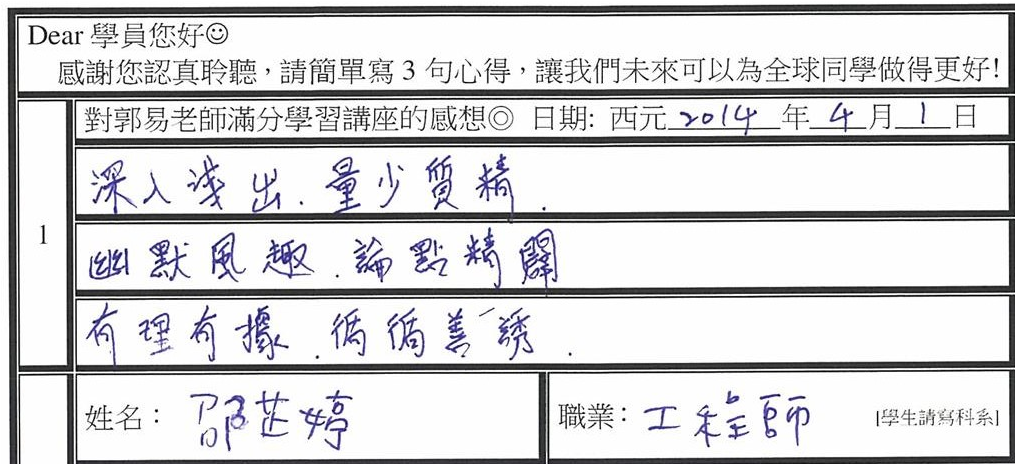 Dear 學員您好☺
感謝您認真聆聽，請簡單寫 3 句心得，讓我們未來可以為全球同學做得更好!
對郭易老師滿分學習講座的感想◎ 日期: 西元 2014 年 4 月 1 日
1
深入淺出．量少質精．
幽默風趣．論點精闢
有理有據．循循善誘．
姓名： 邵芷婷
職業： 工程師 [學生請寫科系]